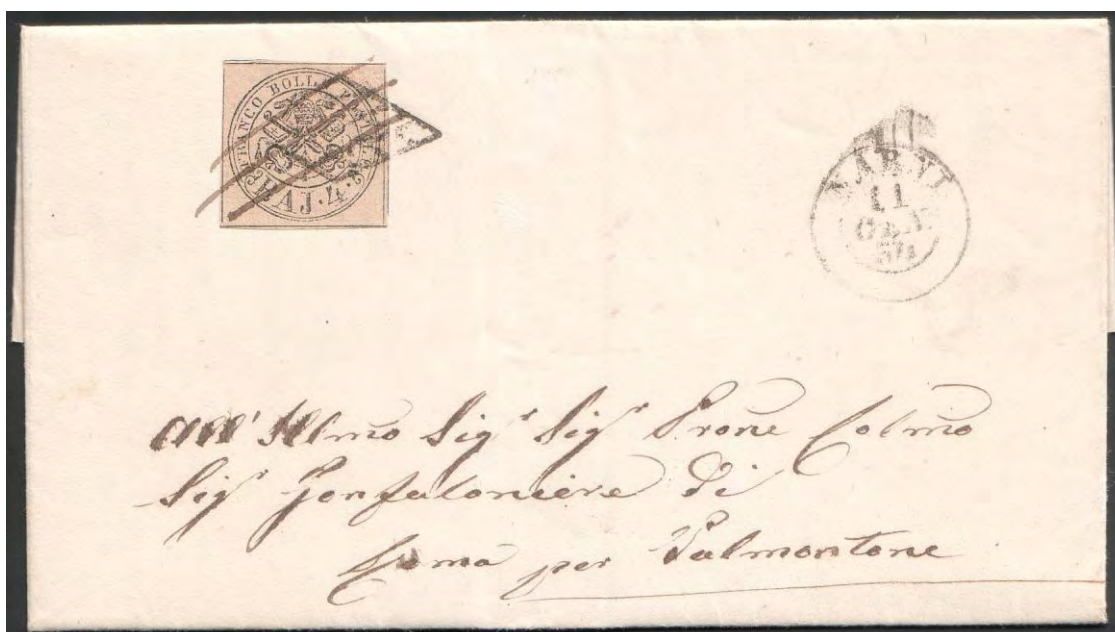 FRANCO BOLLO POSTALE
BAJ. 4.
NARNI
11
GEN
All' Illmo Sigr Sigr Prone Colmo
Sigr Gonfaloniere di
Roma per Valmontone